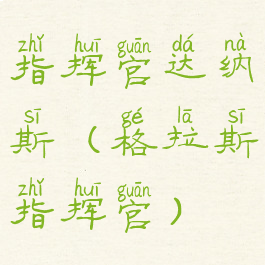 zhǐ huī guān dá nà
指挥官达纳
sī gé lā sī
斯（格拉斯
zhǐ huī guān
指挥官）